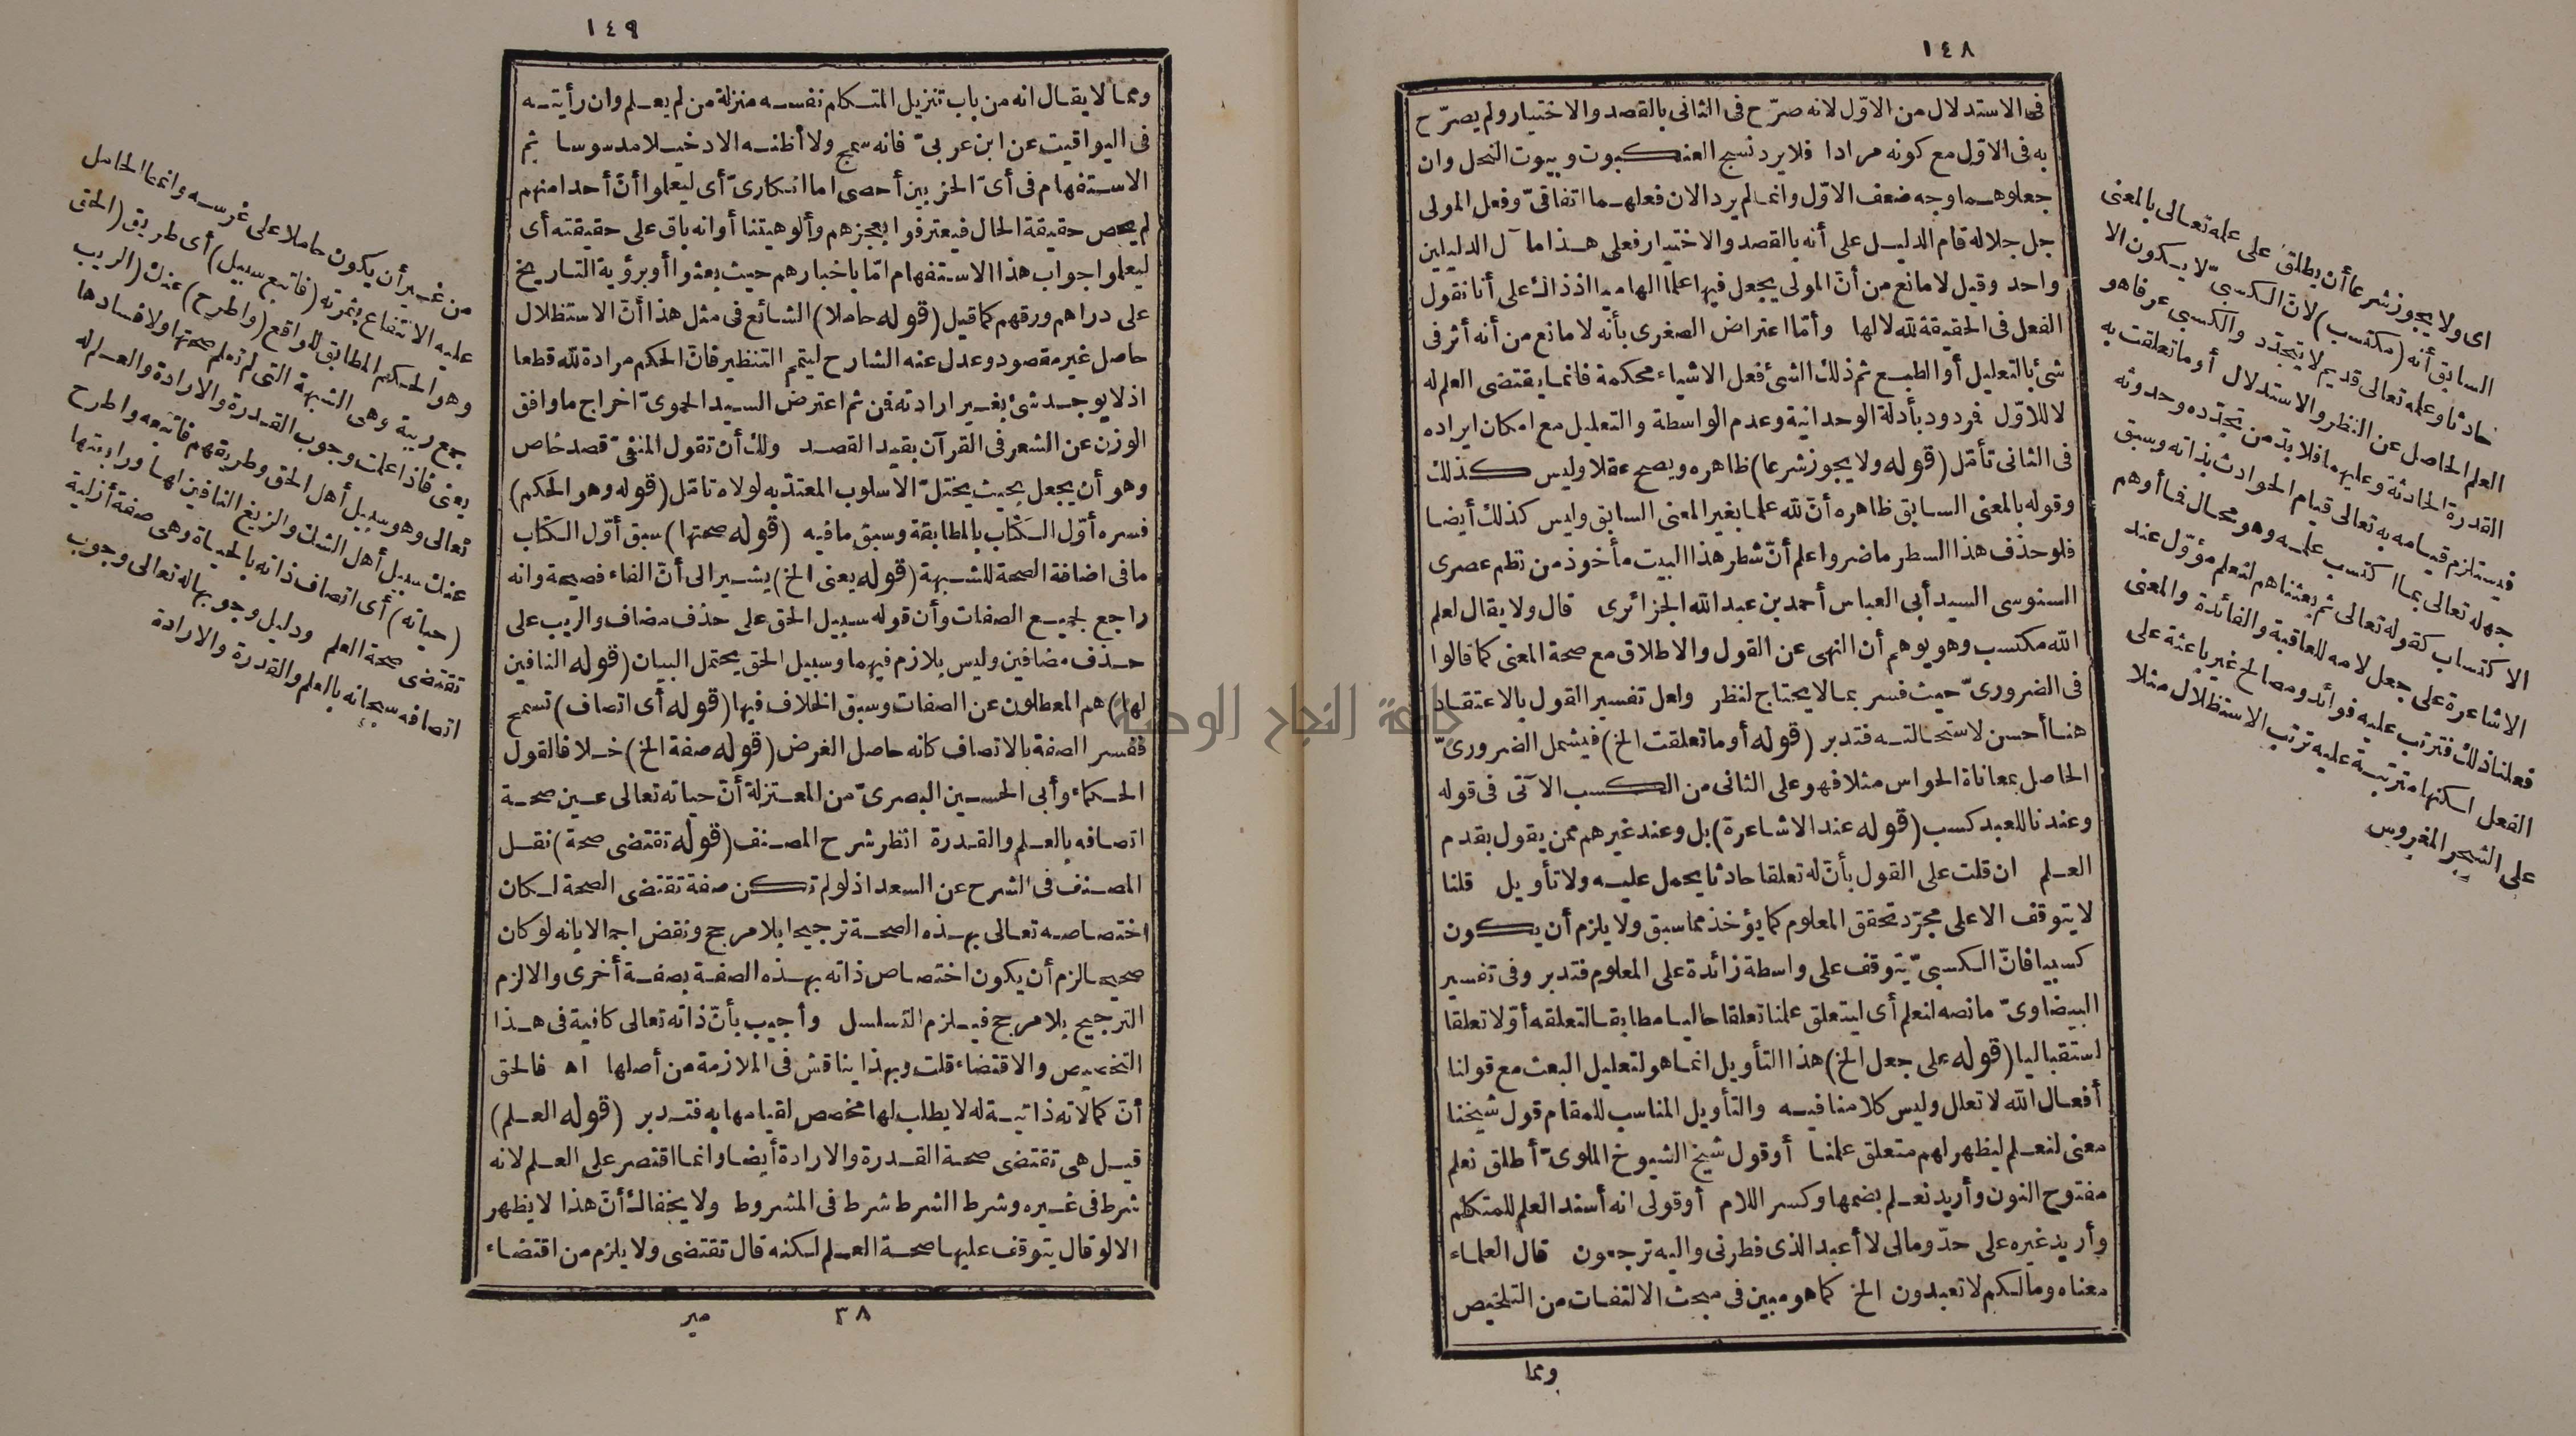 ١٤٨
في الاستدلال من الاوّل لانه صرّح في الثاني بالقصد والاختيار ولم يصرّح
به في الاوّل مع كونه مرادا فلا يرد نسج العنكبوت وبيوت النحل وان
جعلوهما وجه ضعف الاوّل وانما لم يرد الان فعلهما اتفاقيّ وفعل المولى
جل جلاله قام الدليل على أنه بالقصد والاختيار فعلى هذا ما ل الدليلين
واحد وقيل لا مانع من أنّ المولى يجعل فيها علما الهاميا اذ ذاك على أنا نقول
الفعل في الحقيقة لله لا لها وأمّا اعتراض الصغرى بأنه لا مانع من أنه أثر في
شئ بالتعليل أو الطبع ثم ذلك الشئ فعل الاشياء محكمة فانما يقتضى العلم له
لا للاوّل فردود بأدلة الوحدانية وعدم الواسطة والتعليل مع امكان ايراده
في الثاني تأمّل (قوله ولا يجوز شرعا) ظاهره ويصح عقلا وليس كذلك
وقوله بالمعنى السابق ظاهره أنّ لله علما بغير المعنى السابق وليس كذلك أيضا
فلو حذف هذا السطر ما ضر واعلم أنّ شطر هذا البيت مأخوذ من نظم عصرى
السنوسى السيد أبي العباس أحمد بن عبد الله الجزائرى قال ولا يقال لعلم
الله مكتسب وهو يوهم أن النهى عن القول والاطلاق مع صحة المعنى كما قالوا
في الضروريّ حيث فسر بما لا يحتاج لنظر ولعل تفسير القول بالاعتقاد
هنا أحسن لاستحالته فتدبر (قوله أو ما تعلقت الخ) فيشمل الضروريّ
الحاصل بمعاناة الحواس مثلا فهو على الثاني من الكسب الآتى في قوله
وعندنا للعبد كسب (قوله عند الاشاعرة) بل وعند غيرهم ممن يقول بقدم
العلم ان قلت على القول بأنّ له تعلقا حادثا يحمل عليه ولا تأويل قلنا
لا يتوقف الا على مجرّد تحقق المعلوم كما يؤخذ مما سبق ولا يلزم أن يكون
كسبيا فانّ الكسبيّ يتوقف على واسطة زائدة على المعلوم فتدبر وفي تفسير
البيضاويّ ما نصه لنعلم أى ليتعلق علمنا تعلقا حاليا مطابقا لتعلقه أوّلا تعلقا
استقباليا (قوله على جعل الخ) هذا التأويل انما هو لتعليل البعث مع قولنا
أفعال الله لا تعلل وليس كلامنا فيه والتأويل المناسب للمقام قول شيخنا
معنى لنعلم ليظهر لهم متعلق علمنا أو قول شيخ الشيوخ الملويّ أطلق نعلم
مفتوح النون وأريد نعلم بضمها وكسر اللام أو قولى انه أسند العلم للمتكلم
وأريد غيره على حدّ ومالى لا أعبد الذى فطرنى واليه ترجعون قال العلماء
معناه ومالكم لا تعبدون الخ كما هو مبين في مبحث الالتفات من التلخيص
ومما
اى ولا يجوز شرعا أن يطلق على علمه تعالى بالمعنى
السابق أنه (مكتسب) لانّ الكسبيّ لا يكون الا
حادثا وعلمه تعالى قديم لا يتجدّد والكسبى عرفا هو
العلم الحاصل عن النظر والاستدلال أو ما تعلقت به
القدرة الحادثة وعليهما فلا بدّ من تجدّده وحدوثه
فيستلزم قيامه به تعالى قيام الحوادث بذاته وسبق
جهله تعالى بما اكتسب علمه وهو محال فما أوهم
الاكتساب كقوله تعالى ثم بعثناهم لنعلم مؤوّل عند
الاشاعرة على جعل لامه للعاقبة والفائدة والمعنى
فعلنا ذلك فترتب عليه فوائد ومصالح غير باعثة على
الفعل لكنها مترتبة عليه ترتب الاستظلال مثلا
على الشجر المغروس
١٤٩
ومما لا يقال انه من باب تنزيل المتكلم نفسه منزلة من لم يعلم وان رأيته
في اليواقيت عن ابن عربيّ فانه سمج ولا أظنه الا دخيلا مدسوسا ثم
الاستفهام في أىّ الحزبين أحصى اما انكاريّ أى ليعلموا أنّ أحدا منهم
لم يحص حقيقة الحال فيعترفوا بعجزهم وألوهيتنا أو انه باق على حقيقته أى
ليعلموا جواب هذا الاستفهام امّا باخبارهم حيث بعثوا أو برؤية التاريخ
على دراهم ورقهم كما قيل (قوله حاملا) الشائع في مثل هذا أنّ الاستظلال
حاصل غير مقصود وعدل عنه الشارح ليتم التنظير فانّ الحكم مرادة لله قطعا
اذ لا يوجد شئ بغير ارادته فن ثم اعترض السيد الحمويّ اخراج ما وافق
الوزن عن الشعر في القرآن بقيد القصد ولك أن تقول المنفيّ قصد خاص
وهو أن يجعل بحيث يختلّ الاسلوب المعتدّ به لولاه تامّل (قوله وهو الحكم)
فسره أوّل الكتاب بالمطابقة وسبق ما فيه (قوله صحتها) سبق أوّل الكتاب
ما في اضافة الصحة للشبهة (قوله يعنى الخ) يشير الى أنّ الفاء فصيحة وانه
راجع لجميع الصفات وأن قوله سبيل الحق على حذف مضاف والريب على
حذف مضافين وليس بلازم فيهما وسبيل الحق يحتمل البيان (قوله النافين
لها) هم المعطلون عن الصفات وسبق الخلاف فيها (قوله أى اتصاف) تسمح
ففسر الصفة بالاتصاف كانه حاصل الغرض (قوله صفة الخ) خلافا لقول
الحكماء وأبى الحسين البصريّ من المعتزلة أنّ حياته تعالى عين صحة
اتصافه بالعلم والقدرة انظر شرح المصنف (قوله تقتضى صحة) نقل
المصنف في الشرح عن السعد اذ لو لم تكن صفة تقتضى الصحة لكان
اختصاصه تعالى بهذه الصحة ترجيحا بلا مرجح ونقض اجمالا بانه لو كان
صحيحا لزم أن يكون اختصاص ذاته بهذه الصفة بصفة أخرى والا لزم
الترجيح بلا مرجح فيلزم التسلسل وأجيب بأنّ ذاته تعالى كافية في هذا
التخصيص والاقتضاء قلت وبهذا يناقش في الملازمة من أصلها اه فالحق
أنّ كمالاته ذاتية له لا يطلب لها مخصص لقيامها به فتدبر (قوله العلم)
قيل هى تقتضى صحة القدرة والارادة أيضا وانما اقتصر على العلم لانه
شرط في غيره وشرط الشرط شرط في المشروط ولا يخفاك أنّ هذا لا يظهر
الا لو قال يتوقف عليها صحة العلم لكنه قال تقتضى ولا يلزم من اقتضاء
٣٨ مير
من غير أن يكون حاملا على غرسه وانما الحامل
عليه الانتفاع بثمرته (فاتبع سبيل) أى طريق (الحق
وهو الحكم المطابق للواقع (واطرح) عنك (الريب
جمع ريبة وهى الشبهة التى لم تعلم صحتها ولا فسادها
يعنى فاذا علمت وجوب القدرة والارادة والعلم له
تعالى وهو سبيل أهل الحق وطريقهم فاتبعه واطرح
عنك سبيل أهل الشك والزيغ النافين لها ورابعتها
(حياته) أى اتصاف ذاته بالحياة وهى صفة أزلية
تقتضى صحة العلم ودليل وجوبها له تعالى وجوب
اتصافه سبحانه بالعلم والقدرة والارادة
جامعة النجاح الوطنية